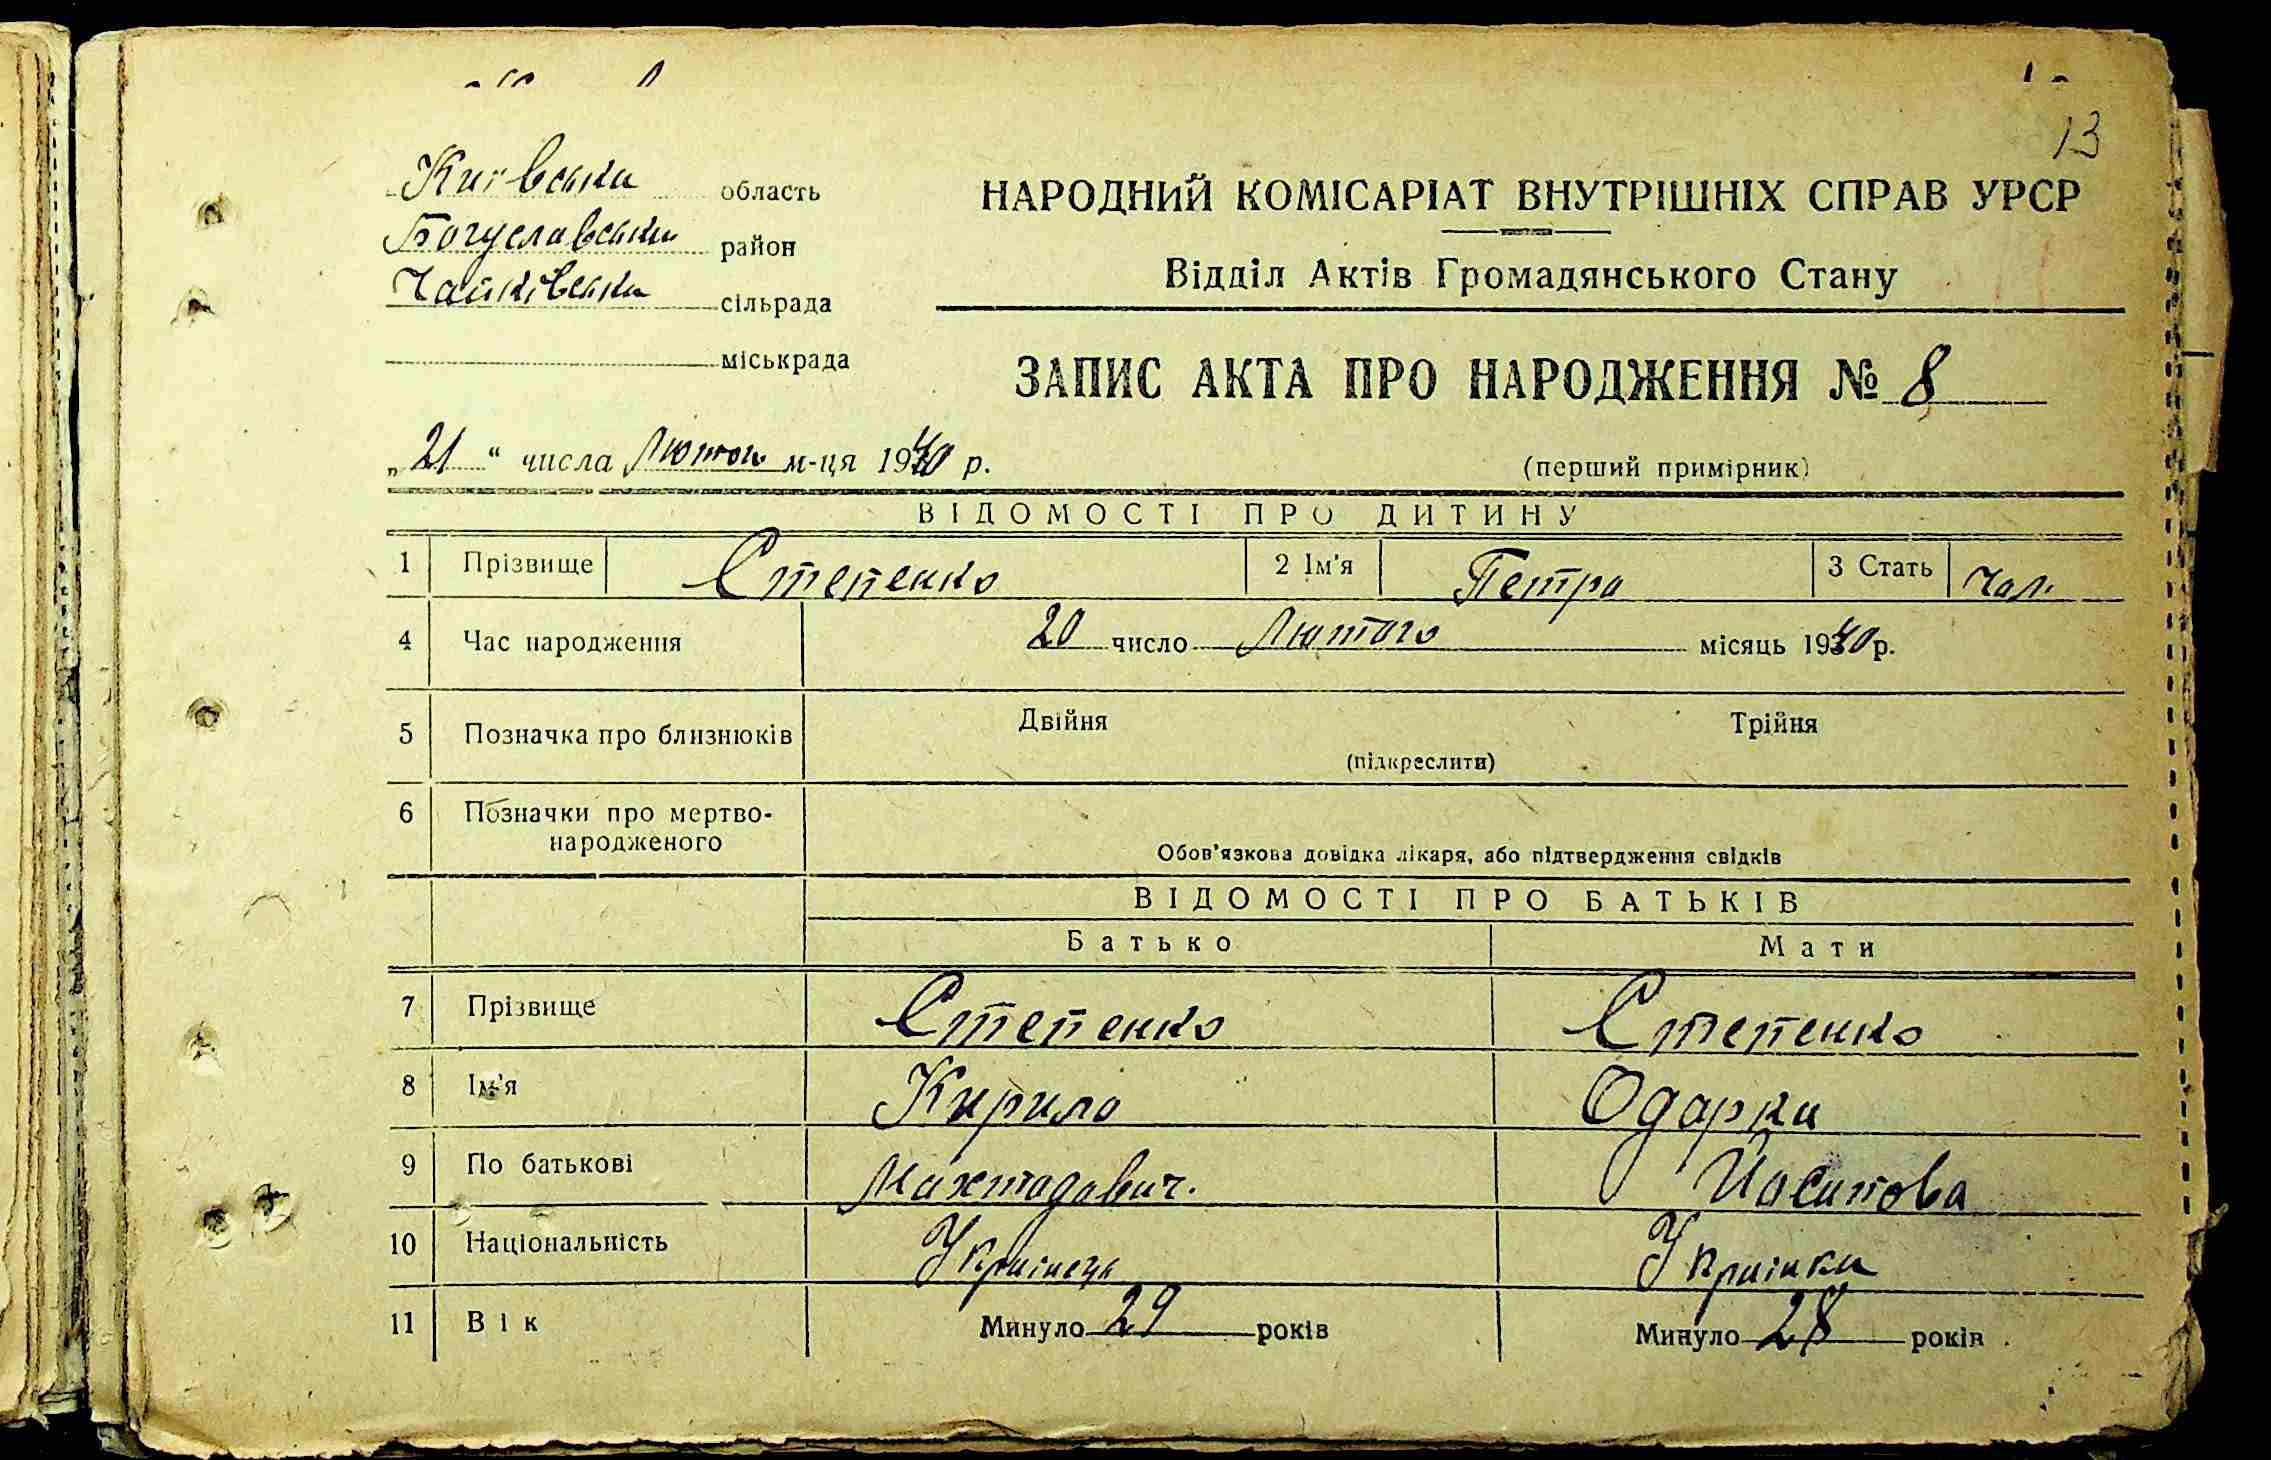 13
Київська область
Богуславський район
Чайківська сільрада
міськрада
НАРОДНИЙ КОМІСАРІАТ ВНУТРІШНІХ СПРАВ УРСР
Відділ Актів Громадянського Стану
ЗАПИС АКТА ПРО НАРОДЖЕННЯ № 8
„21“ числа Лютого м-ця 1940 р.
(перший примірник)
ВІДОМОСТІ ПРО ДИТИНУ
1 Прізвище Степенко 2 Ім'я Петро 3 Стать Чол.
4 Час народження 20 число Лютого місяць 1940 р.
5 Позначка про близнюків Двійня Трійня
(підкреслити)
6 Позначки про мертво-
народженого
Обов'язкова довідка лікаря, або підтвердження свідків
ВІДОМОСТІ ПРО БАТЬКІВ
Батько Мати
7 Прізвище Степенко Степенко
8 Ім'я Кирило Одарка
9 По батькові Йосипова
10 Національність Українець Українка
11 Вік Минуло 29 років Минуло 28 років